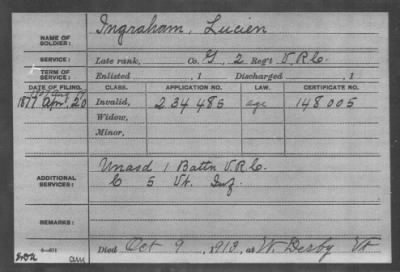 NAME OF SOLDIER: Ingraham, Lucien
SERVICE: Late rank, Co. G, 2 Reg't V.R.C.
TERM OF SERVICE: Enlisted , 1 Discharged , 1
DATE OF FILING. CLASS. APPLICATION NO. LAW. CERTIFICATE NO.
1877 Apr. 20 Invalid, 234 486 age 148 005
Widow,
Minor,
ADDITIONAL SERVICES: Unasd 1 Battn V.R.C.
C 5 Vt. Inf.
REMARKS:
Died Oct 9, 1913, at W. Derby Vt